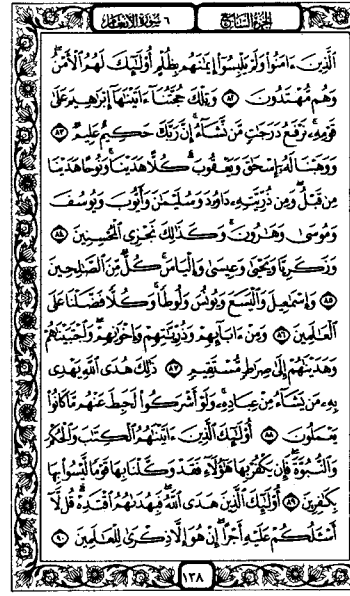 ٦ سورة الأنعام
الجزء السابع
الَّذِينَ ءَامَنُوا وَلَمْ يَلْبِسُوا إِيمَٰنَهُم بِظُلْمٍ أُولَٰٓئِكَ لَهُمُ الْأَمْنُ
وَهُم مُّهْتَدُونَ ٨٢ وَتِلْكَ حُجَّتُنَآ ءَاتَيْنَٰهَآ إِبْرَٰهِيمَ عَلَىٰ
قَوْمِهِۦ نَرْفَعُ دَرَجَٰتٍ مَّن نَّشَآءُ إِنَّ رَبَّكَ حَكِيمٌ عَلِيمٌ ٨٣
وَوَهَبْنَا لَهُۥٓ إِسْحَٰقَ وَيَعْقُوبَ كُلًّا هَدَيْنَا وَنُوحًا هَدَيْنَا
مِن قَبْلُ وَمِن ذُرِّيَّتِهِۦ دَاوُۥدَ وَسُلَيْمَٰنَ وَأَيُّوبَ وَيُوسُفَ
وَمُوسَىٰ وَهَٰرُونَ وَكَذَٰلِكَ نَجْزِي الْمُحْسِنِينَ ٨٤
وَزَكَرِيَّا وَيَحْيَىٰ وَعِيسَىٰ وَإِلْيَاسَ كُلٌّ مِّنَ الصَّٰلِحِينَ
٨٥ وَإِسْمَٰعِيلَ وَالْيَسَعَ وَيُونُسَ وَلُوطًا وَكُلًّا فَضَّلْنَا عَلَى
الْعَٰلَمِينَ ٨٦ وَمِنْ ءَابَآئِهِمْ وَذُرِّيَّٰتِهِمْ وَإِخْوَٰنِهِمْ وَاجْتَبَيْنَٰهُمْ
وَهَدَيْنَٰهُمْ إِلَىٰ صِرَٰطٍ مُّسْتَقِيمٍ ٨٧ ذَٰلِكَ هُدَى اللَّهِ يَهْدِي
بِهِۦ مَن يَشَآءُ مِنْ عِبَادِهِۦ وَلَوْ أَشْرَكُوا لَحَبِطَ عَنْهُم مَّا كَانُوا
يَعْمَلُونَ ٨٨ أُولَٰٓئِكَ الَّذِينَ ءَاتَيْنَٰهُمُ الْكِتَٰبَ وَالْحُكْمَ
وَالنُّبُوَّةَ فَإِن يَكْفُرْ بِهَا هَٰٓؤُلَآءِ فَقَدْ وَكَّلْنَا بِهَا قَوْمًا لَّيْسُوا بِهَا
بِكَٰفِرِينَ ٨٩ أُولَٰٓئِكَ الَّذِينَ هَدَى اللَّهُ فَبِهُدَىٰهُمُ اقْتَدِهْ قُل لَّآ
أَسْـَٔلُكُمْ عَلَيْهِ أَجْرًا إِنْ هُوَ إِلَّا ذِكْرَىٰ لِلْعَٰلَمِينَ ٩٠
١٣٨